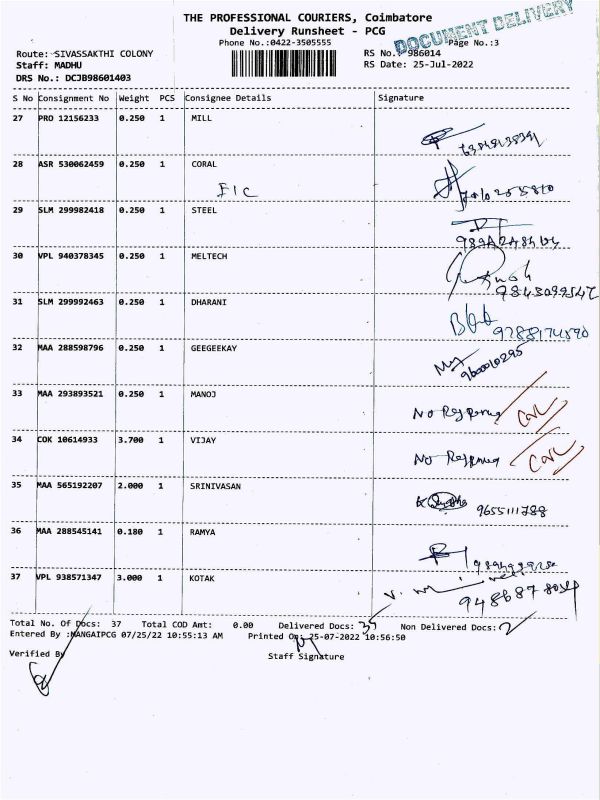 THE PROFESSIONAL COURIERS, Coimbatore
Delivery Runsheet - PCG
DOCUMENT DELIVERY
Phone No.:0422-3505555
Page No.:3
Route: SIVASSAKTHI COLONY
RS No.: 986014
Staff: MADHU
RS Date: 25-Jul-2022
DRS No.: DCJB98601403
S No Consignment No Weight PCS Consignee Details Signature
27 PRO 12156233 0.250 1 MILL
28 ASR 530062459 0.250 1 CORAL
EIC
29 SLM 299982418 0.250 1 STEEL
30 VPL 940378345 0.250 1 MELTECH
9843099547
31 SLM 299992463 0.250 1 DHARANI
9788174590
32 MAA 288598796 0.250 1 GEEGEEKAY
9600010295
33 MAA 293893521 0.250 1 MANOJ
No Response
34 COK 10614933 3.700 1 VIJAY
No Response
35 MAA 565192207 2.000 1 SRINIVASAN
9655111788
36 MAA 288545141 0.180 1 RAMYA
37 VPL 938571347 3.000 1 KOTAK
Total No. Of Docs: 37 Total COD Amt: 0.00 Delivered Docs: 35 Non Delivered Docs: 2
Entered By :MANGAIPCG 07/25/22 10:55:13 AM Printed On: 25-07-2022 10:56:50
Verified By
Staff Signature